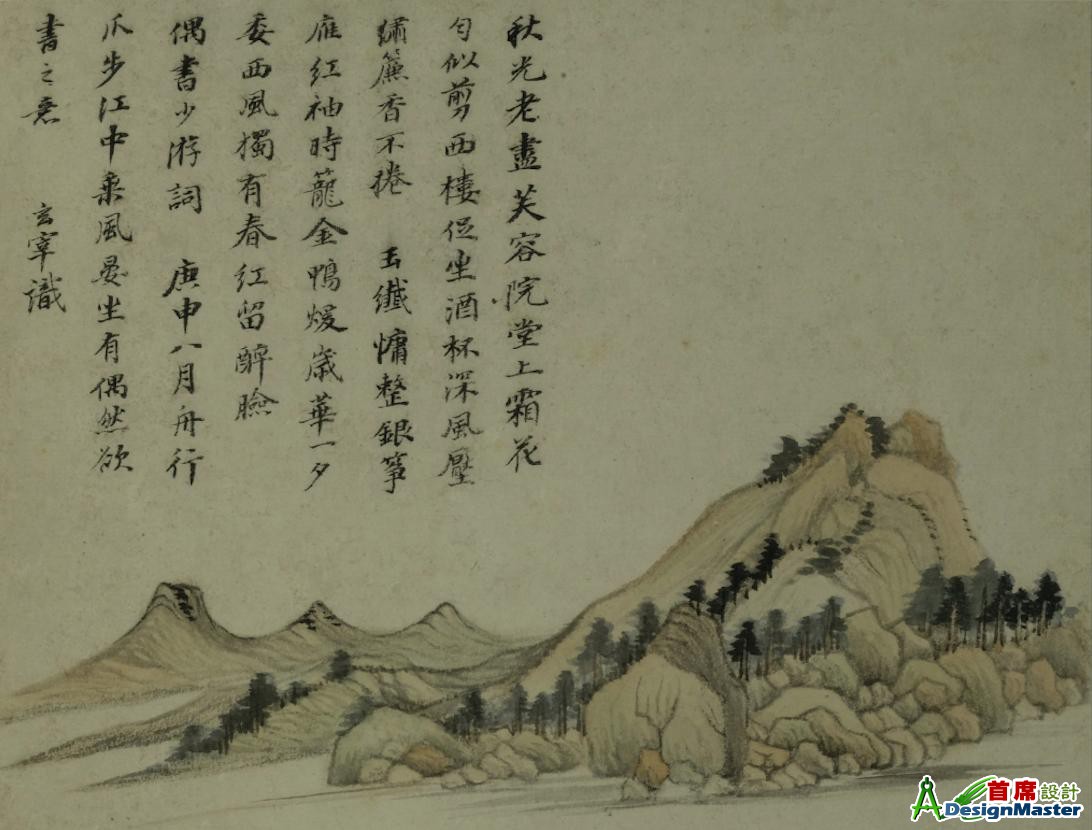 秋光老盡芙容院堂上霜花
勻似剪西樓促坐酒杯深風壓
繡簾香不捲 玉纖慵整銀箏
雁紅袖時籠金鴨煖歲華一夕
委西風獨有春紅留醉臉
偶書少游詞 庚申八月舟行
爪步江中乘風晏坐有偶然欲
書之意 玄宰識
首席設計
DesignMaster